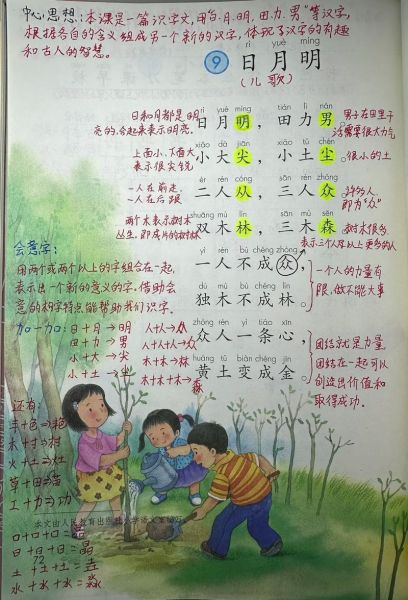 中心思想：本课是一篇识字文，用"日、月、明、田、力、男"等汉字，
根据各自的含义组成另一个新的汉字，体现了汉字的有趣
和古人的智慧。
rì yuè míng
9 日月明
（儿歌）
rì yuè míng tián lì nán
日月明，田力男。
日和月都是明亮的，合起来表示明亮。
男子在田里干活需要很大力气
xiǎo dà jiān xiǎo tǔ chén
小大尖，小土尘。
上面小、下面大表示很尖锐
很小的土
èr rén cóng sān rén zhòng
二人从，三人众。
一人在前走，一人在后跟
许多人，即为"众"
shuāng mù lín sān mù sēn
双木林，三木森。
两个木表示树木丛生，即成片的树林
树木很多
表示三个人及以上更多的人
yì rén bù chéng zhòng
一人不成众，
dú mù bù chéng lín
独木不成林。
一个人的力量有限，做不能大事
zhòng rén yì tiáo xīn
众人一条心，
huáng tǔ biàn chéng jīn
黄土变成金。
团结就是力量
团结在一起可以创造出价值和取得成功。
会意字：
用两个或两个以上的字组合在一起，
表示出一个新的意义的字。借助会
意的构字特点能帮助我们识字。
加一加：日＋月→明 人＋人→从
田＋力→男 人＋人＋人→众
小＋大→尖 木＋木→林
小＋土→尘 木＋木＋木→森
还有：
丰＋色→艳
木＋寸→村
火＋土→灶
草＋田→苗
工＋力→功
本文由人民教育出版社小学语文室编写
口＋口＋口＝品
日＋日＋日＝晶
72
土＋土＋土＝垚
水＋水＋水＝淼